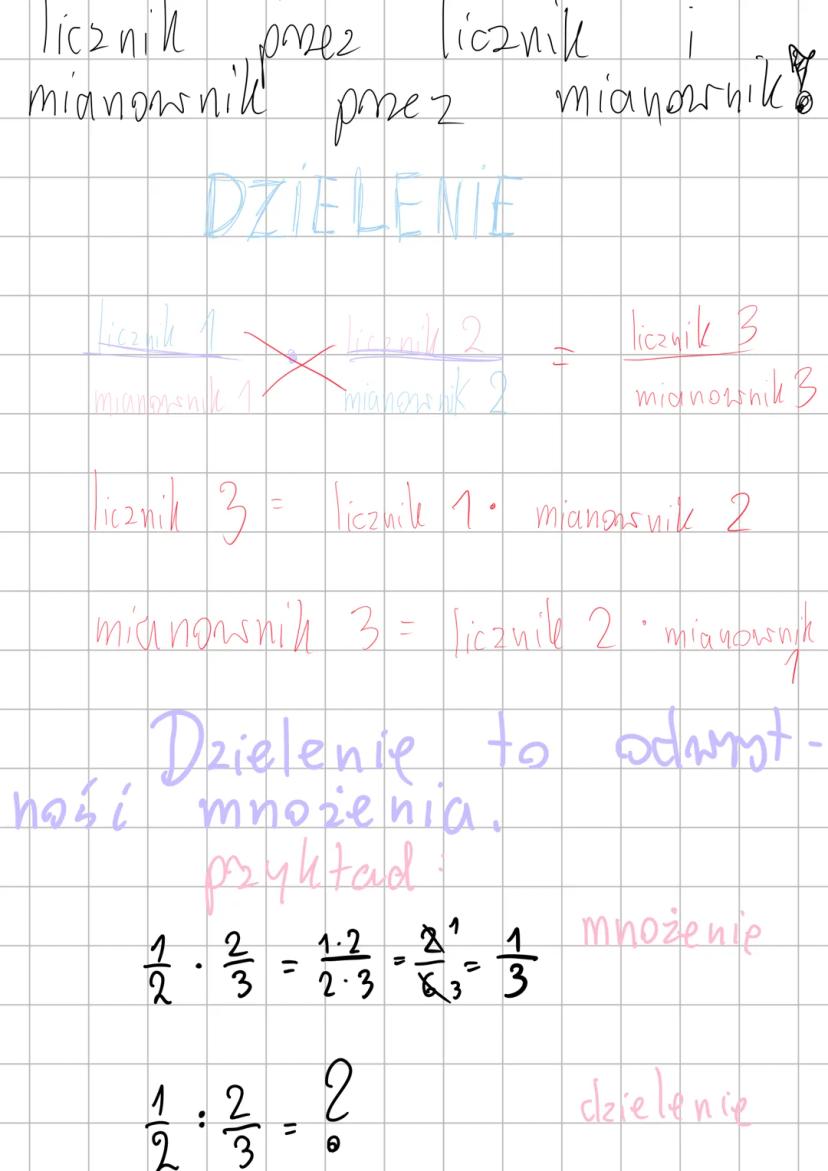 licznik przez licznik i
mianownik przez mianownik!
DZIELENIE
licznik 1 / mianownik 1 : licznik 2 / mianownik 2 = licznik 3 / mianownik 3
licznik 3 = licznik 1 · mianownik 2
mianownik 3 = licznik 2 · mianownik
1
Dzielenie to odwrot-
ność mnożenia.
przykład:
1/2 · 2/3 = 1·2/2·3 = 2/6 1/3 = 1/3 mnożenie
1/2 : 2/3 = ? dzielenie